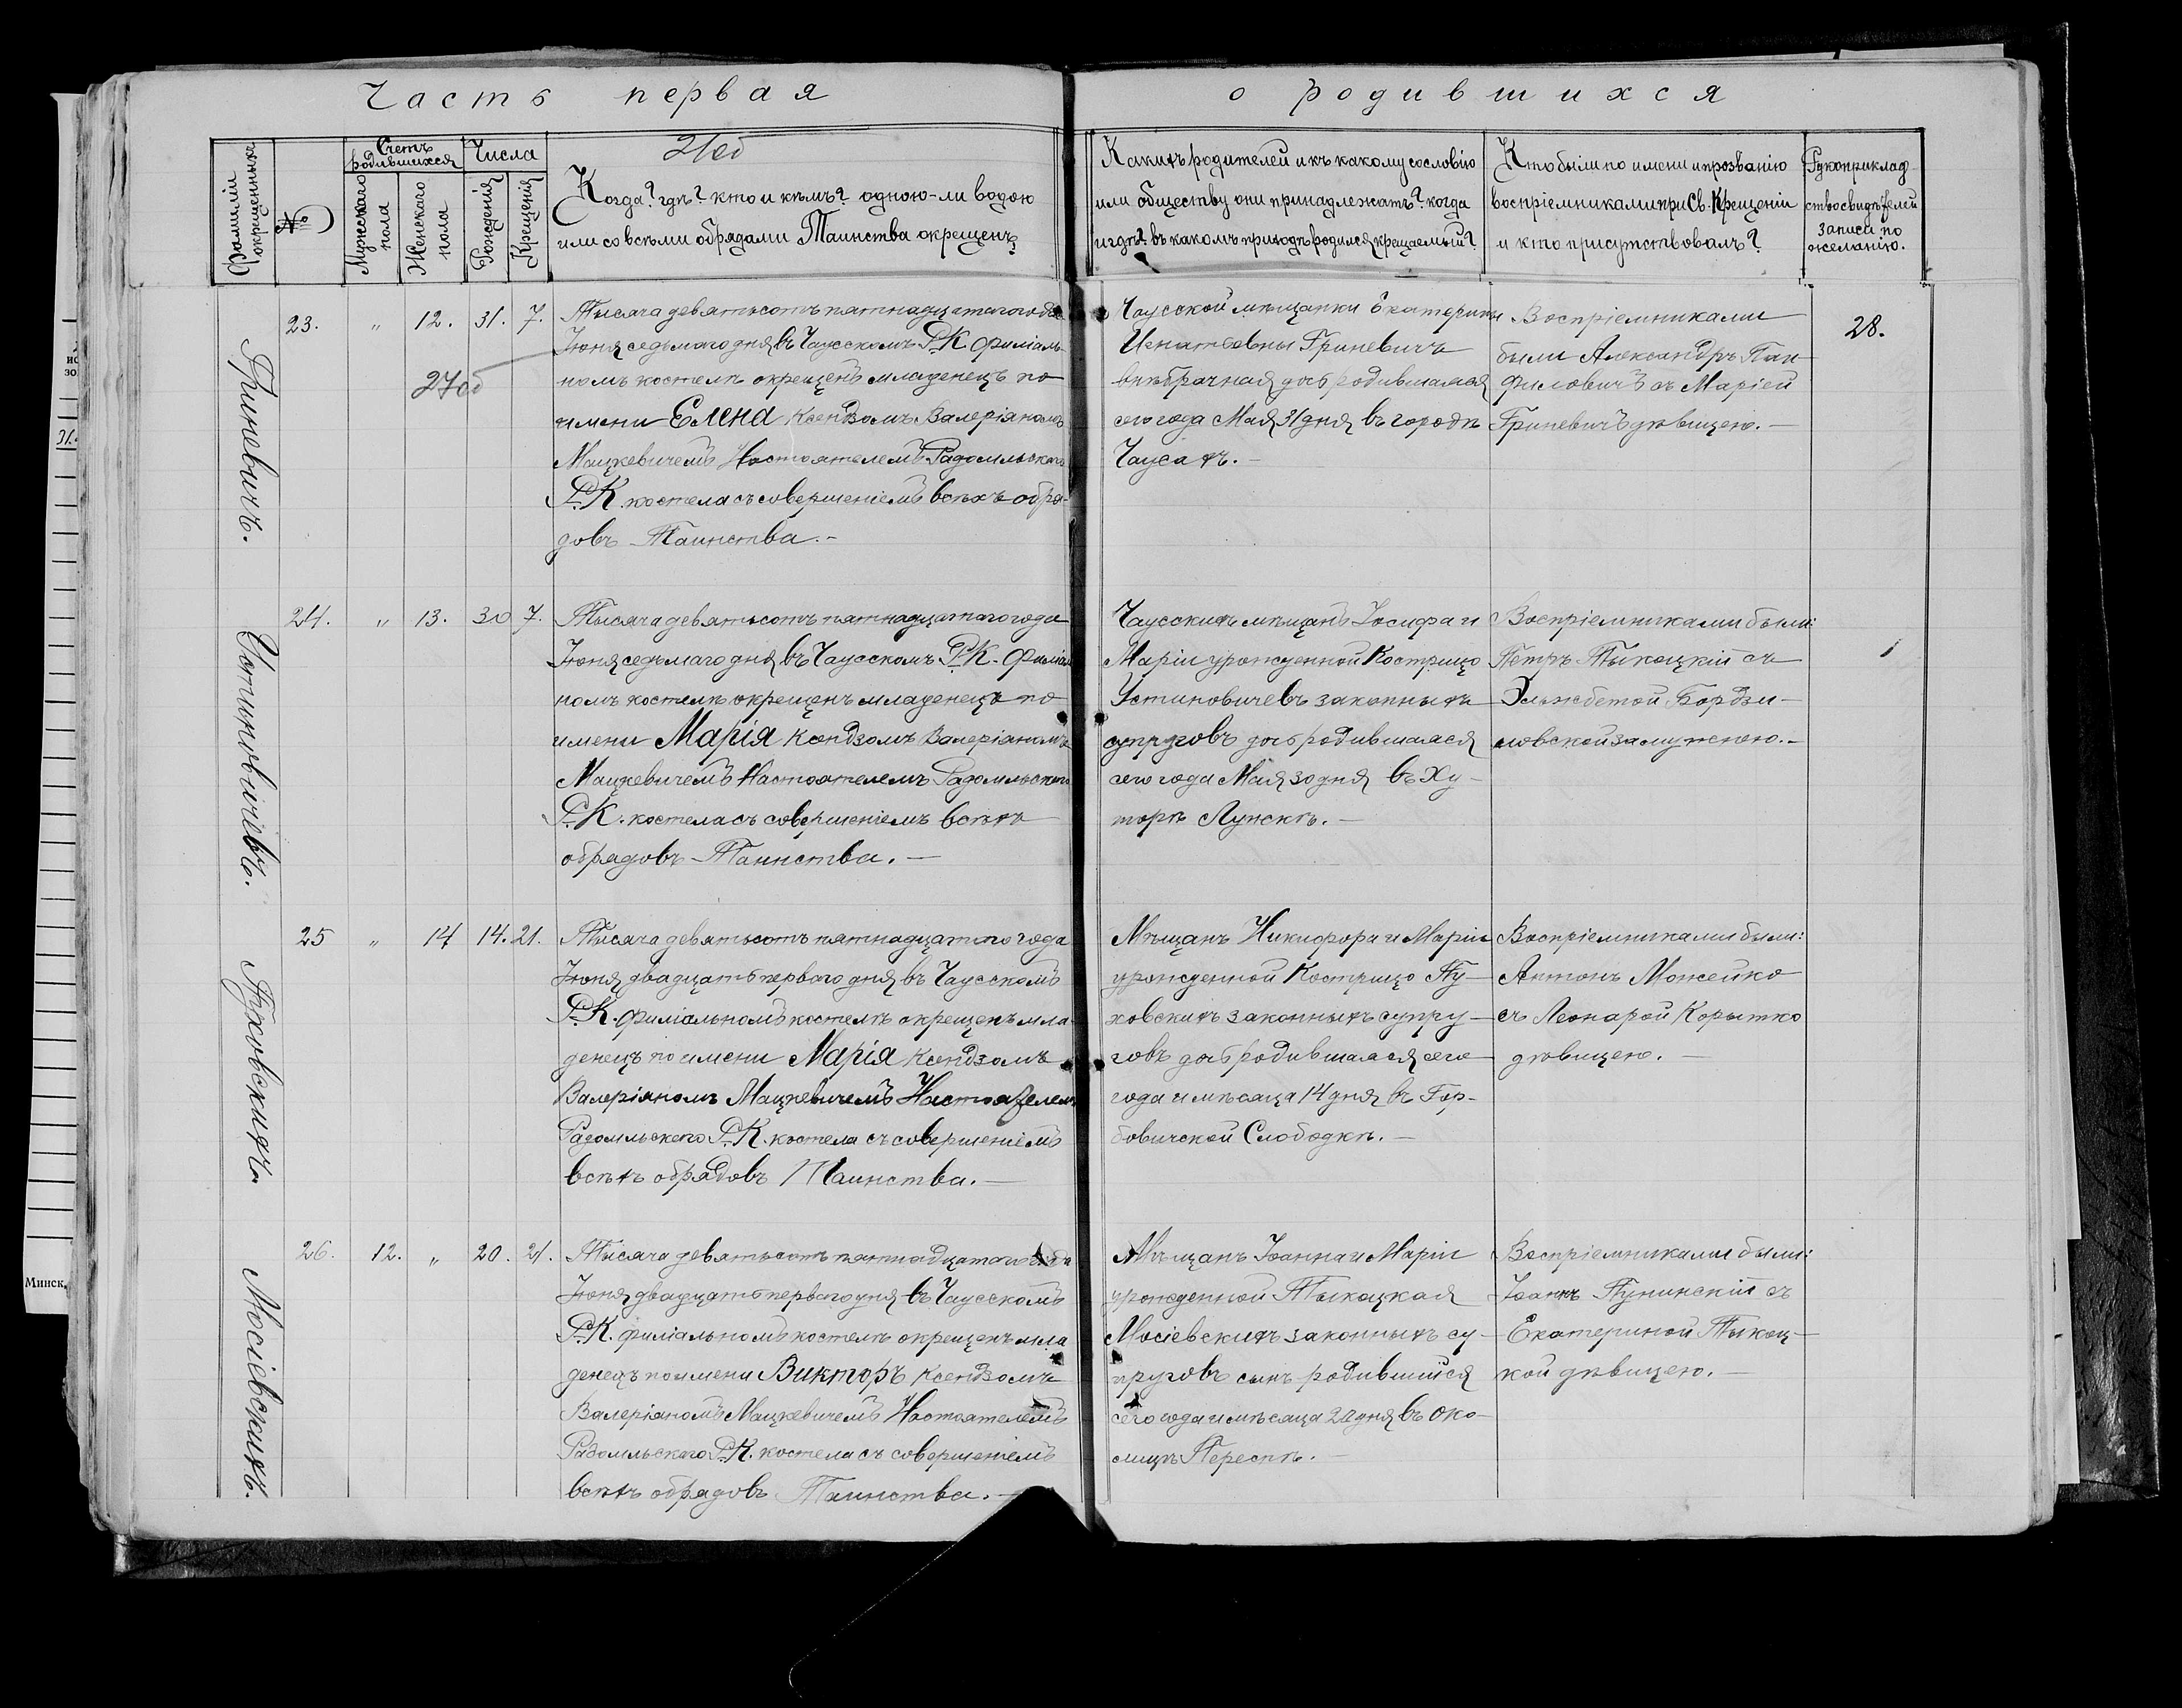 Часть первая
о родившихся
Фамиліи окрещенныхъ
№
Счетъ родившихся
Мужескаго пола
Женскаго пола
Числа
Рожденія
Крещенія
Когда? гдѣ? кто и кѣмъ? одною-ли водою
или со всѣми обрядами Таинства окрещенъ?
Какихъ родителей и къ какому сословію
или обществу они принадлежатъ? когда
и гдѣ? въ какомъ приходѣ родился крещаемый?
Кто были по имени и прозванію
воспріемниками при Св. Крещеніи
и кто присутствовалъ?
Рукоприклад-
ство свидѣтелей
записи по
желанію.
Гриневичъ.
23. " 12. 31. 7.
27об
Тысяча девятьсотъ пятнадцатаго года
Іюня седьмаго дня въ Чаусскомъ Р.К. филіаль-
номъ костелѣ окрещенъ младенецъ по
имени Елена Ксендзомъ Валеріаномъ
Мацкевичемъ Настоятелемъ Радомльскаго
Р.К. костела съ совершеніемъ всѣхъ обря-
довъ Таинства.-
Чаусской мѣщанки Екатерины
Игнатьевны Гриневичъ
внѣбрачная дочь родившаяся
сего года Мая 31 дня въ городѣ
Чаусахъ.-
Воспріемниками
были Александръ Пан
филовичъ съ Маріей
Гриневичъ дѣвицею.-
28.
Устиновичевъ.
24. " 13. 30 7.
Тысяча девятьсотъ пятнадцатаго года
Іюня седьмаго дня въ Чаусскомъ Р.К. филіаль
номъ костелѣ окрещенъ младенецъ по
имени Марія Ксендзомъ Валеріаномъ
Мацкевичемъ Настоятелемъ Радомльскаго
Р.К. костела съ совершеніемъ всѣхъ
обрядовъ Таинства.-
Чаусскихъ мѣщанъ Іосифа и
Маріи урожденной Кострицо
Устиновичевъ законныхъ
супруговъ дочь родившаяся
сего года Мая 30 дня въ Ху-
торѣ Лунскѣ.-
Воспріемниками были:
Петръ Тыкоцкій съ
Эльжбетой Бордзи-
ловской замужнею.-
Пуховскихъ.
25 " 14 14. 21.
Тысяча девятьсотъ пятнадцатаго года
Іюня двадцать перваго дня въ Чаусскомъ
Р.К. филіальномъ костелѣ окрещенъ мла-
денецъ по имени Марія Ксендзомъ
Валеріаномъ Мацкевичемъ Настоятелемъ
Радомльскаго Р.К. костела съ совершеніемъ
всѣхъ обрядовъ Таинства.-
Мѣщанъ Никифора и Маріи
урожденной Кострицо Пу-
ховскихъ законныхъ супру-
говъ дочь родившаяся сего
года и мѣсяца 14 дня въ Гор-
бовичской Слободкѣ.-
Воспріемниками были:
Антонъ Можейко
съ Леонарой Корытко
дѣвицею.-
Мосіевскихъ.
26. 12. " 20. 21.
Тысяча девятьсотъ пятнадцатаго года
Іюня двадцать перваго дня въ Чаусскомъ
Р.К. филіальномъ костелѣ окрещенъ мла
денецъ по имени Викторъ Ксендзомъ
Валеріаномъ Мацкевичемъ Настоятелемъ
Радомльскаго Р.К. костела съ совершеніемъ
всѣхъ обрядовъ Таинства.-
Мѣщанъ Іоанна и Маріи
урожденной Тыкоцкая
Мосіевскихъ законныхъ су-
пруговъ сынъ родившійся
сего года и мѣсяца 20 дня въ око-
лицѣ Переспѣ.-
Воспріемниками были:
Іоаннъ Пунинскій съ
Екатериной Тыкоц-
кой дѣвицею.-
31.
Минск,